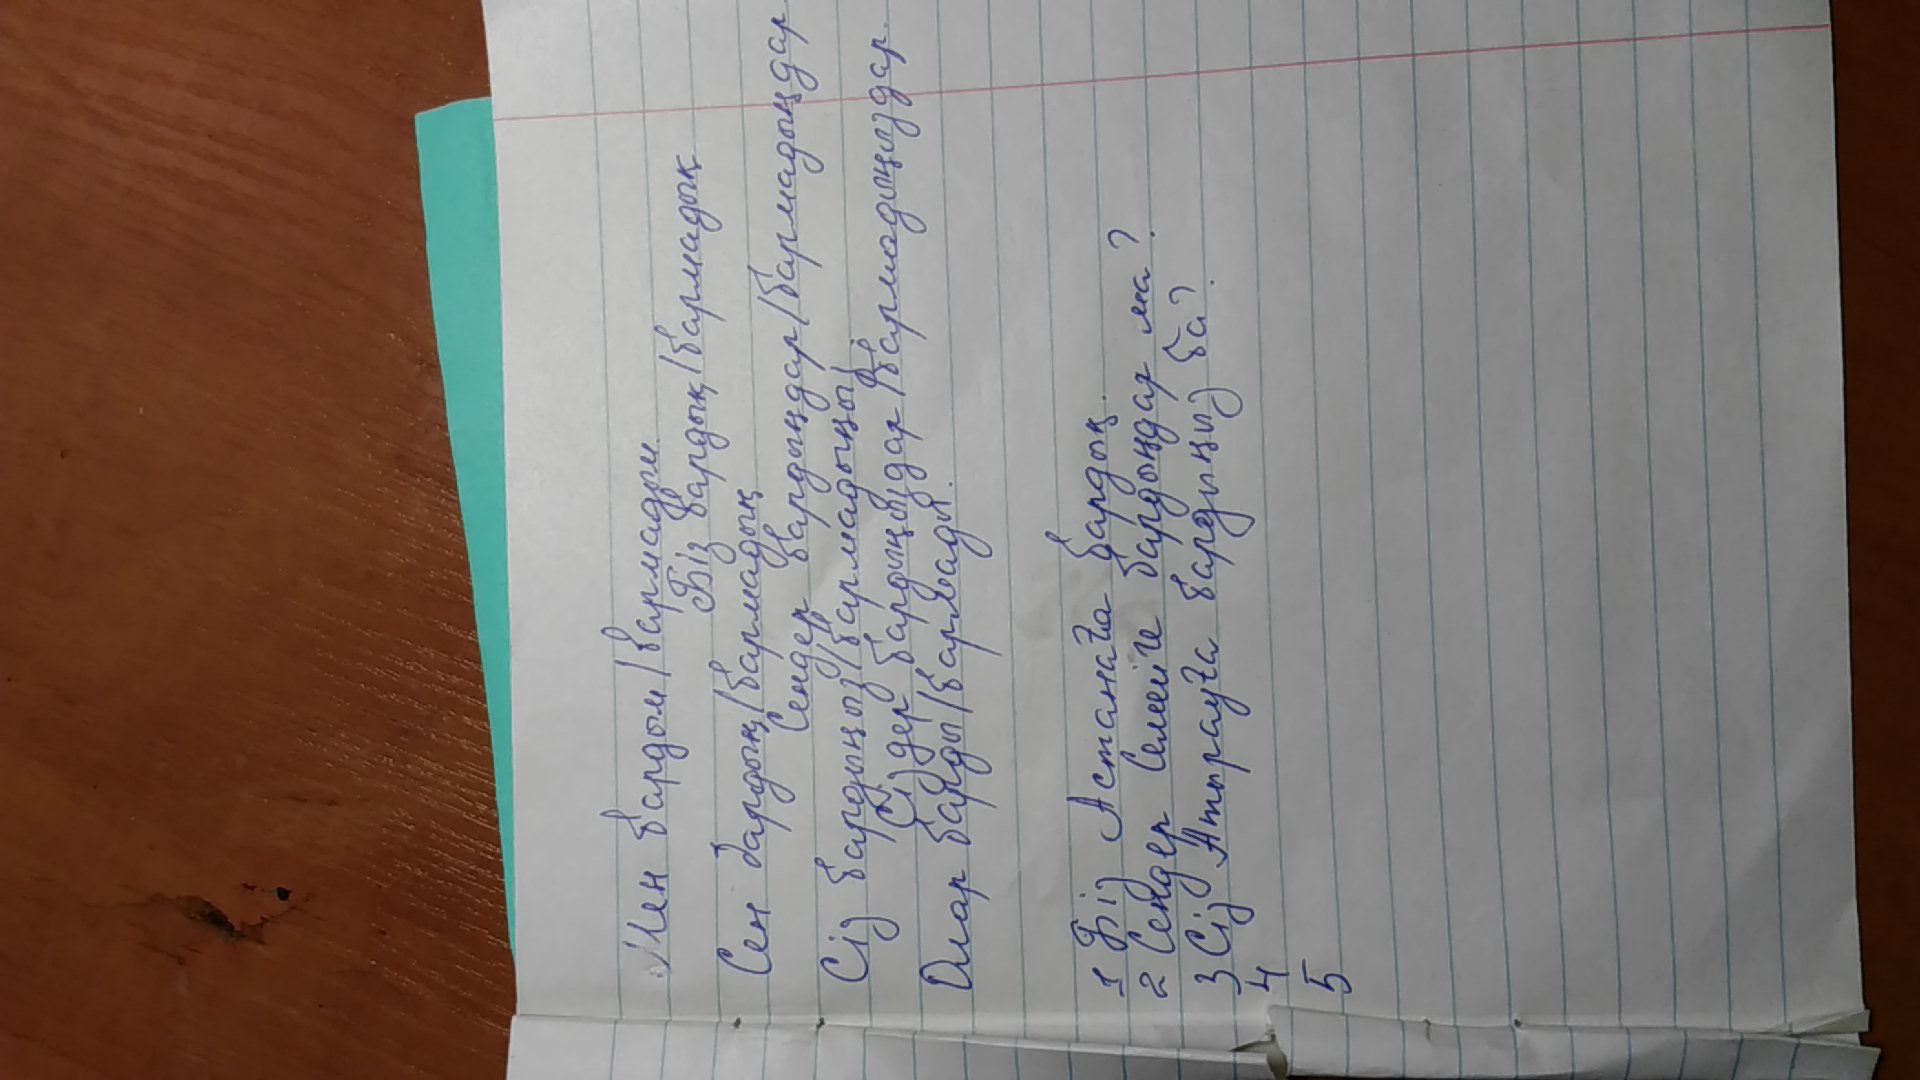 Мен бардым/бармадым
Біз бардық/бармадық
Сен бардың/бармадың
Сендер бардыңдар/бармадыңдар
Сіз бардыңыз/бармадыңыз
Сіздер бардыңыздар/бармадыңыздар.
Олар барды/бармады.
1 Біз Астанаға бардық.
2 Сендер Семейге бардыңдар ма?
3 Сіз Атырауға бардыңыз ба?
4
5